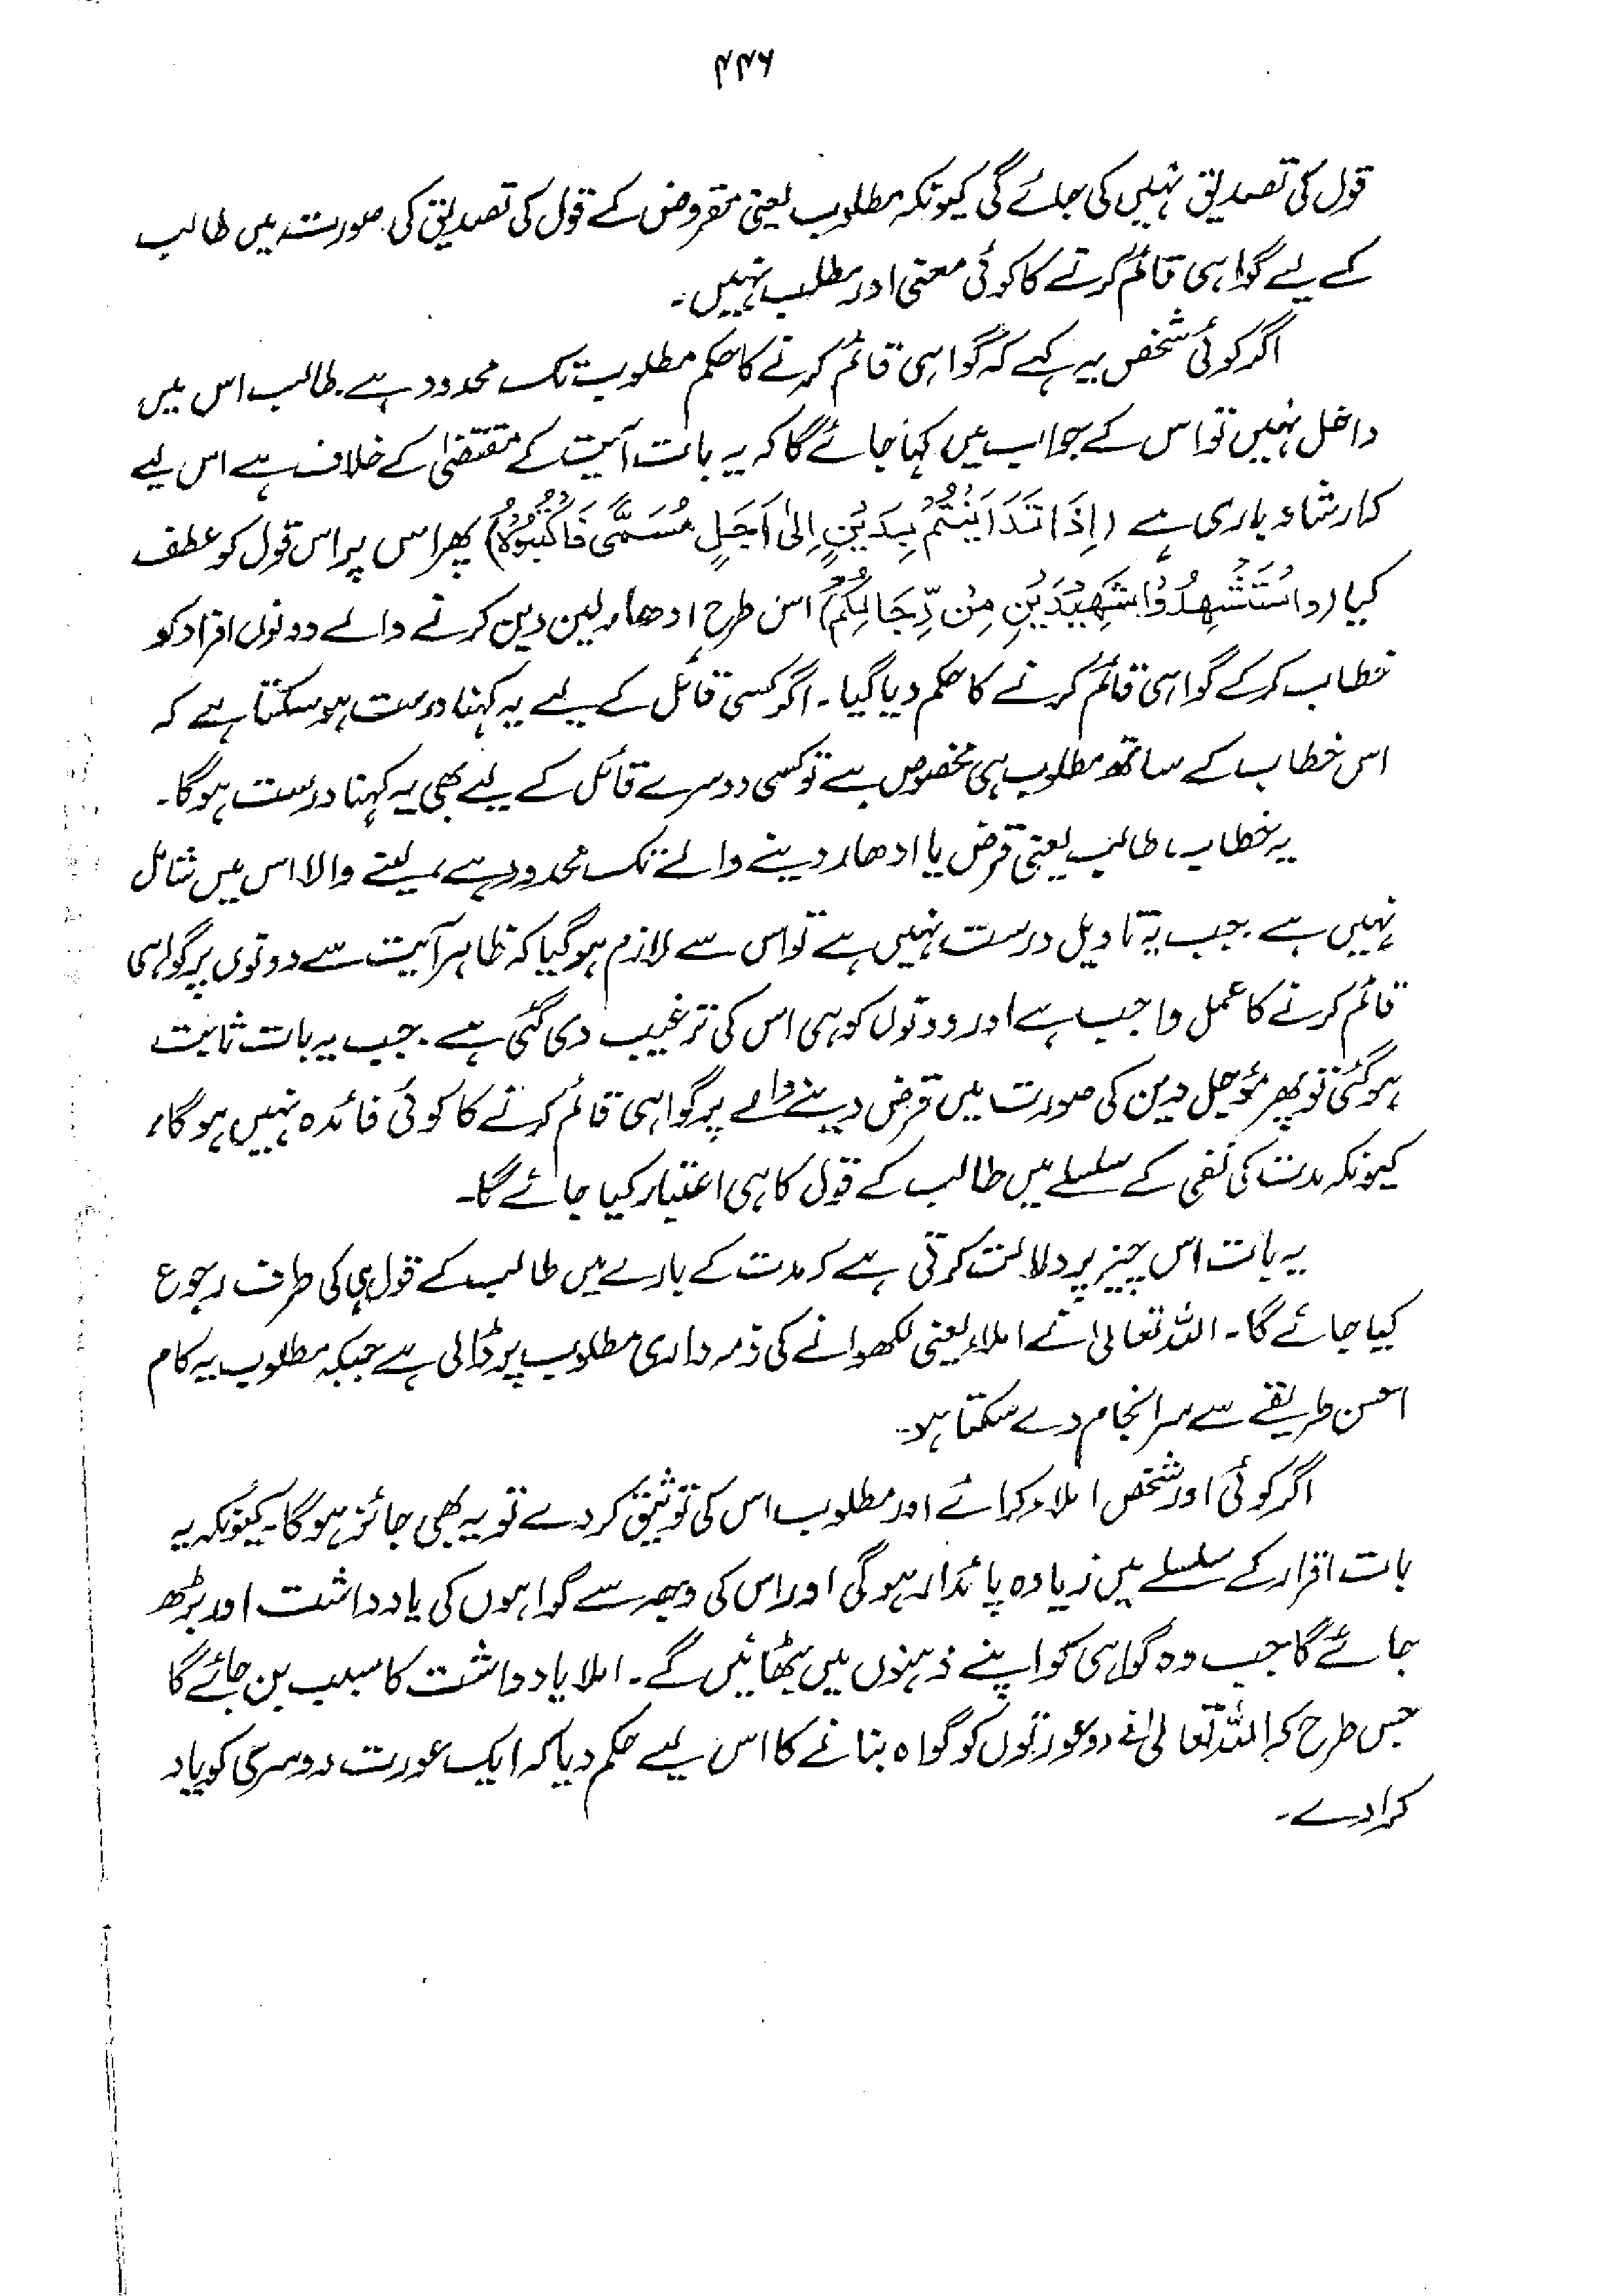 ۴۴۶
قول کی تصدیق نہیں کی جائے گی کیونکہ مطلوب یعنی مقروض کے قول کی تصدیق کی صورت میں طالب
کے لیے گواہی قائم کرنے کا کوئی معنی اور مطلب نہیں۔
اگر کوئی شخص یہ کہے کہ گواہی قائم کرنے کا حکم مطلوب تک محدود ہے۔ طالب اس میں
داخل نہیں تو اس کے جواب میں کہا جائے گا کہ یہ بات آیت کے مقتضیٰ کے خلاف ہے اس لیے
کہ ارشاد باری ہے (اِذَا تَدَایَنْتُمْ بِدَیْنٍ اِلیٰ اَجَلٍ مُسَمًّی فَاکْتُبُوْہُ) پھر اس پر اس قول کو عطف
کیا (وَاسْتَشْهِدُوْا شَهِیْدَیْنِ مِنْ رِّجَالِکُمْ) اس طرح ادھار لین دین کرنے والے دونوں افراد کو
خطاب کر کے گواہی قائم کرنے کا حکم دیا گیا۔ اگر کسی قائل کے لیے یہ کہنا درست ہو سکتا ہے کہ
اس خطاب کے ساتھ مطلوب ہی مخصوص ہے تو کسی دوسرے قائل کے لیے بھی یہ کہنا درست ہوگا۔
یہ خطاب، طالب یعنی قرض یا ادھار دینے والے تک محدود ہے، لینے والا اس میں شامل
نہیں ہے۔ جب یہ تاویل درست نہیں ہے تو اس سے لازم ہوگیا کہ ظاہر آیت سے دونوں پر گواہی
قائم کرنے کا عمل واجب ہے اور دونوں کو ہی اس کی ترغیب دی گئی ہے۔ جب یہ بات ثابت
ہوگئی تو پھر مؤجل دین کی صورت میں قرض دینے والے پر گواہی قائم کرنے کا کوئی فائدہ نہیں ہوگا،
کیونکہ مدت کی نفی کے سلسلے میں طالب کے قول کا ہی اعتبار کیا جائے گا۔
یہ بات اس چیز پر دلالت کرتی ہے کہ مدت کے بارے میں طالب کے قول ہی کی طرف رجوع
کیا جائے گا۔ اللہ تعالیٰ نے املاء یعنی لکھوانے کی ذمہ داری مطلوب پر ڈالی ہے جبکہ مطلوب یہ کام
احسن طریقے سے سرانجام دے سکتا ہو۔
اگر کوئی اور شخص املاء کرائے اور مطلوب اس کی توثیق کر دے تو یہ بھی جائز ہوگا۔ کیونکہ یہ
بات اقرار کے سلسلے میں زیادہ پائدار ہوگی اور اس کی وجہ سے گواہوں کی یادداشت اور بڑھ
جائے گا جب وہ گواہی کو اپنے ذہنوں میں بٹھائیں گے۔ املا یادداشت کا سبب بن جائے گا
جس طرح کہ اللہ تعالیٰ نے دو عورتوں کو گواہ بنانے کا اس لیے حکم دیا کہ ایک عورت دوسری کو یاد
کرا دے۔